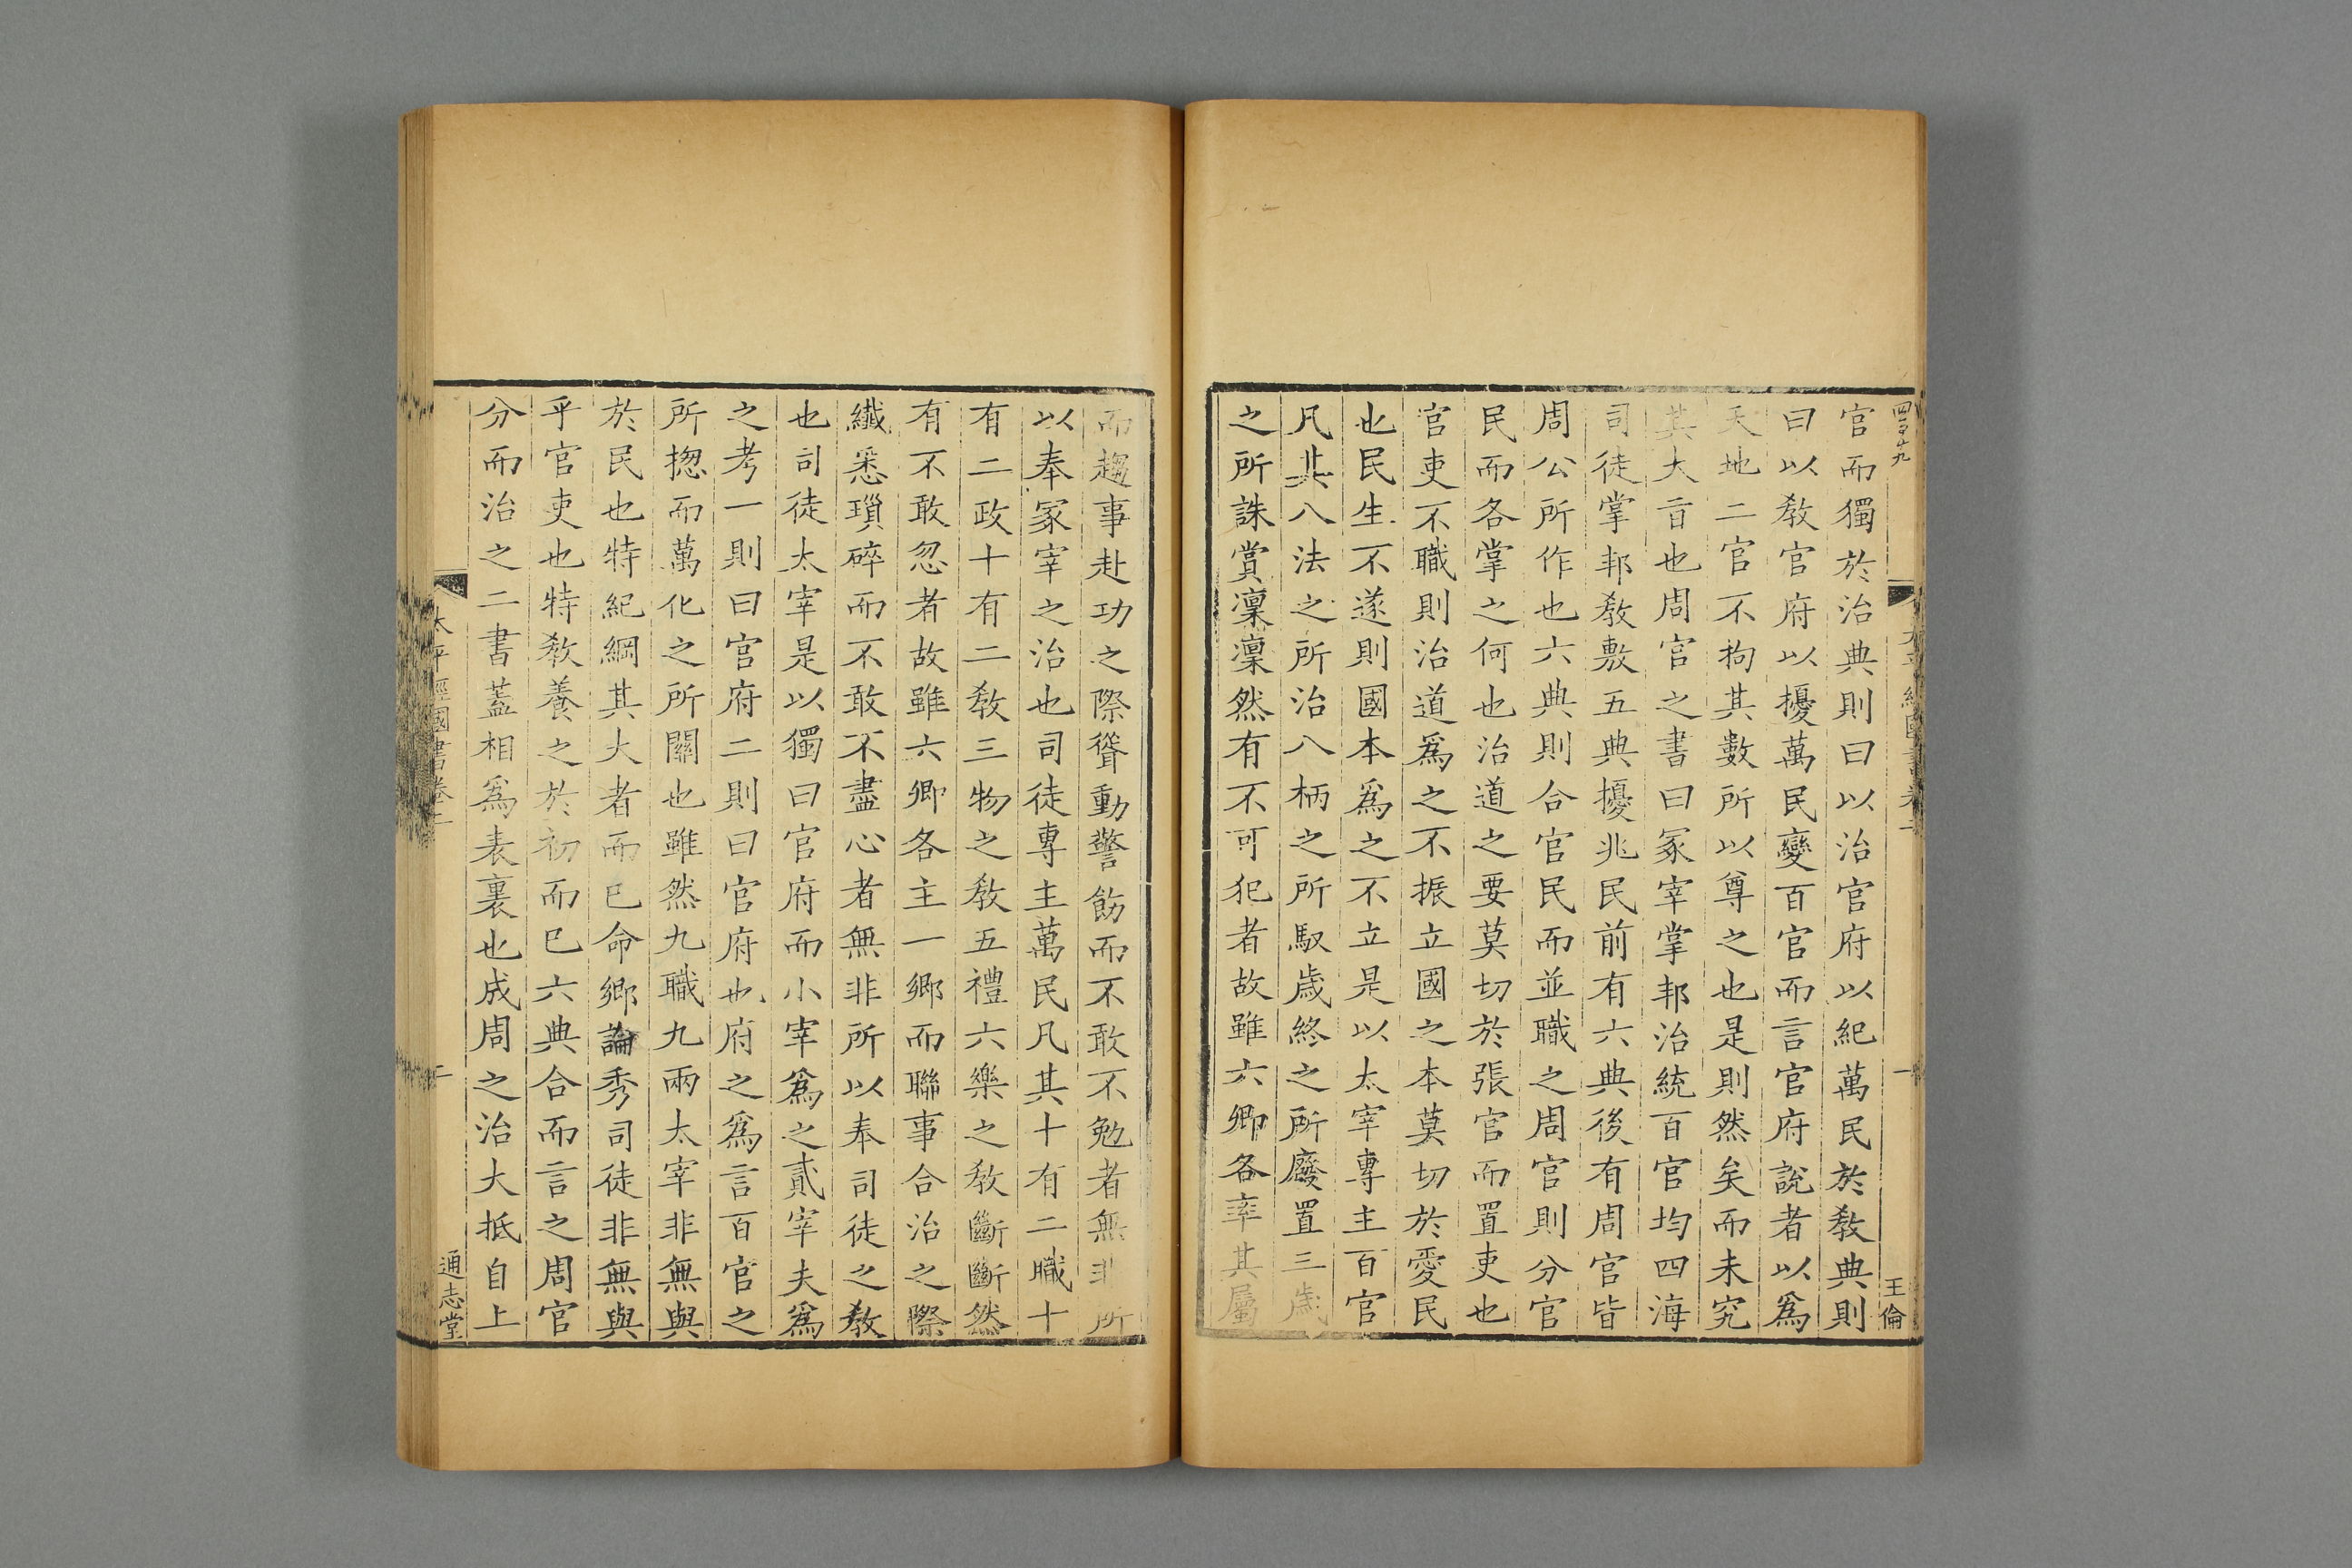 官而獨於治典則曰以治官府以紀萬民於教典則
曰以教官府以擾萬民變百官而言官府說者以爲
天地二官不拘其數所以尊之也是則然矣而未究
其大旨也周官之書曰冢宰掌邦治統百官均四海
司徒掌邦教敷五典擾兆民前有六典後有周官皆
周公所作也六典則合官民而並職之周官則分官
民而各掌之何也治道之要莫切於張官而置吏也
官吏不職則治道爲之不振立國之本莫切於愛民
也民生不遂則國本爲之不立是以太宰專主百官
凡其八法之所治八柄之所馭歲終之所廢置三歲
之所誅賞凜凜然有不可犯者故雖六卿各率其屬
王倫
而趨事赴功之際聳動警飭而不敢不勉者無非所
以奉冢宰之治也司徒專主萬民凡其十有二職十
有二政十有二教三物之教五禮六樂之教斷斷然
有不敢忽者故雖六卿各主一鄉而聯事合治之際
纖悉瑣碎而不敢不盡心者無非所以奉司徒之教
也司徒太宰是以獨曰官府而小宰爲之貳宰夫爲
之考一則曰官府二則曰官府也府之爲言百官之
所揔而萬化之所關也雖然九職九兩太宰非無與
於民也特紀綱其大者而已命鄉論秀司徒非無與
乎官吏也特教養之於初而已六典合而言之周官
分而治之二書蓋相爲表裏也成周之治大抵自上
太平經國書卷二
二
通志堂